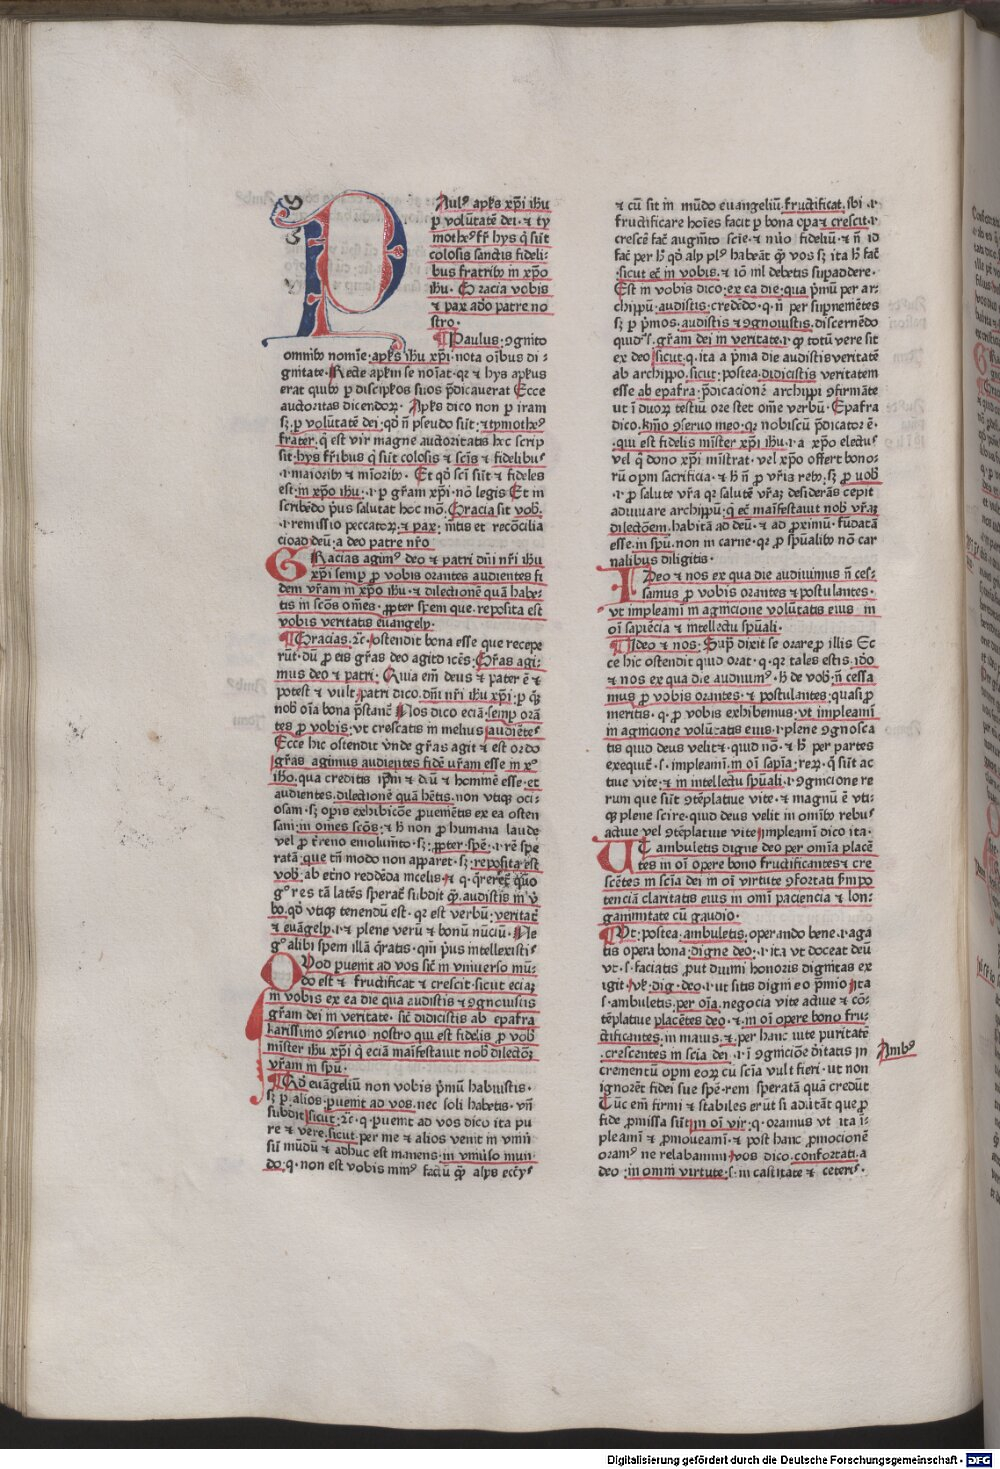 PAulꝰ apl̃s xp̃i ih̃u
p volūtatē dei · ⁊ ty
motheꝰ fr̃ hys q̃ sūt
colosis sanctis fideli-
bus fratribꝰ in xp̃o
ih̃u · Gracia vobis
⁊ pax a do̅ patre no
stro ·
Paulus · ꝯgnito
omnibꝰ nomine · apl̃s ih̃u xp̃i · nota oĩbus di-
gnitate · Recte apl̃m se noĩat · qꝛ ⁊ hys apl̃us
erat quibꝰ p discip̃los suos p̃dicauerat Ecce
auctoritas dicendoꝝ · Apl̃s dico non p iram
sꝫ p volūtatē dei · qd̃ n̄ pseudo sūt · ⁊ tymotheꝰ
frater · q̃ est vir magne auctoritatis hec scrip
sit · hys fr̃ibus q̃ sūt colosis ⁊ sc̃is ⁊ fidelibuꝰ
·ı· maioribꝰ ⁊ mĩoribꝰ · Et qd̃ sc̃i sūt ⁊ fideles
est · in xp̃o ih̃u · ı· p gr̃am xp̃i · nō legis Et in
scribēdo p̃us salutat hoc mō · Gracia sit vob̃ ·
·ı· remissio peccatoꝝ · ⁊ pax · mētis et recōcilia
cio ad deū · a deo patre nr̃o
GRacias agimꝰ deo ⁊ patri dn̄i nr̃i ih̃u
xp̃i semp p vobis orantes audientes fi
dem vr̃am in xp̃o ih̃u · ⁊ dilectionē quā habe-
tis in sc̃os om̄es · ꝓpter spem que reposita est
vobis veritatis euangelÿ ·
Gracias · ⁊c̃ · ostendit bona esse que recepe
rūt · dū p eis gr̃as deo agit dicẽs · Gr̃as agi-
mus deo ⁊ patri · Quia em̄ deus ⁊ pater ē ⁊
potest ⁊ vult · patri dico · dn̄i nr̃i ih̃u xp̃i · p q̃
nob̃ oĩa bona p̃stanĩ Nos dico eciā · semp orā
tes p vobis · vt crescatis in melius · audiētes
Ecce hic ostendit vnde gr̃as agit ⁊ est ordo
gr̃as agimus audientes fidē vr̃am esse in xꝰ
ih̃o · qua creditis ip̃m ⁊ deū ⁊ hominē esse · et
audientes · dilectionē quā hẽtis · non vtiqꝫ oci-
osam · sꝫ opis exhibicōe ꝓuemētis ex ea osten
sam · in om̄es sc̃os · ⁊ h̃ non p humana laude
vel p t̃reno emolumto · sꝫ · ꝓpter spē · ı· rē spe
ratā · que tn̄ modo non apparet · sꝫ · reposita est
vob̃ · ab et̃no reddēda in celis · ⁊ q · q̃reret̃ quo
gꝰ res tā latēs sperat̃ subdit q̃ · audistis in v̾
bo · qd̃ vtiqꝫ tenendū est · qꝛ est verbū · veritat̃
⁊ euāgelÿ · ı· ⁊ plene verū ⁊ bonū nūciū · Ne
gꝰ alibi spem illā q̃ratis · qm̄ p̃us intellexistiꝰ
QVod puenit ad vos sic̃ in vniuerso mū-
do est ⁊ fructificat ⁊ crescit · sicut eciaꝫ
in vobis ex ea die qua audistis ⁊ ꝯgnouistis
gr̃am dei in veritate · sic̃ didicistis ab epafra
karissimo ꝯseruo nostro qui est fidelis p vob̃
mister ih̃u xp̃i q̃ eciā maĩfestauit nob̃ dilectōꝫ
vr̃am in spū ·
Qd̃ euāgeliū non vobis p̃mū habuistis ·
sꝫ p alios · puenit ad vos · nec soli habetis · vn̄
subdit · sicut · ⁊c̃ · q · puenit ad vos dico ita pu
re ⁊ vere · sicut · per me ⁊ alios venit in vniū
sū mūdū ⁊ adhuc est manens · in vniu̾so mun
do · q · non est vobis mmꝰ factū q̃ · alÿs ecc̃ÿs
⁊ cū sit in mūdo euangeliū · fructificat · ibi ·ı·
fructificare hoĩes facit p bona opa ⁊ crescit · ı·
crescē fac̃ augm̄to scīe · ⁊ nūo fideliū · ⁊ n̄ id
fac̃ per h̃ qd̃ alÿ plꝰ habeāt q̃ vos sꝫ ita h̃ fac̃
· sicut ec̃ in vobis · ⁊ iō nl̃ debetis supaddere ·
Est in vobis dico · ex ea die · qua p̃mū per ar-
chippū · audistis · credēdo · q · n̄ per supuementes
sꝫ p p̃mos · audistis ⁊ ꝯgnouistis · discernēdo
quidꝰ s · gr̃am dei in veritate · ı· q̃ totū vere sit
ex deo · sicut · q · ita a p̃ma die audistis veritatē
ab archippo · sicut · postea · didicistis veritatem
esse ab epafra · p̃dicacionē archippi ꝯfirmāte
ut i duoꝝ testiū ore stet om̄e verbū · Epafra
dico · kmo ꝯseruo meo · qꝛ nobiscū p̃dicator ē ·
· qui est fidelis mister xp̃i ih̃u · ı· a xp̃o electuꝰ
vel q̃ dono xp̃i ministrat · vel xp̃o offert bono-
rū opm sacrificia · ⁊ h̃ n̄ p vr̃is rebꝰ · sꝫ p vob̃
· ı· p salute vr̃a qꝛ salutē vr̃aꝫ desiderās cepit
adiuuare archippū · q̃ ec̃ maĩfestauit nob̃ vr̃aꝫ
dilectōem · habitā ad deū · ⁊ ad proximū · fūdatā
esse · in spū · non in carne · qꝛ p spūalibꝰ nō car
nalibus diligitis ·
IDeo ⁊ nos ex qua die audiuimus n̄ ces-
samus p vobis orantes ⁊ postulantes ·
vt impleami in agnicione volūtatis eius in
oĩ sapiēcia ⁊ intellectu spūali ·
Ideo ⁊ nos · Sup̃ dixit se orare p illis Ec
ce hic ostendit quid orat · q · qꝛ tales estis · ido
⁊ nos ex qua die audiuimꝰ · h̃ de vob̃ · n̄ cessa
mus p vobis orantes · ⁊ postulantes · quasi p
meritis · q · p vobis exhibemus · vt impleami
in agnicione volūtatis eius · ı· plene ꝯgnosca
tis quid deus velit ⁊ · quid nō · ⁊ h̃ per partes
exequit̃ · s · impleami · in oĩ sapīa · reꝝ · q̃ sūt ac
tiue vite · ⁊ in intellectu spūali · ı· ꝯgnicione re
rum que sūt ꝯtēplatiue vite · ⁊ magnū ē vti-
qꝫ plene scire · quid deus velit in omībꝰ rebuꝰ
actiue vel ꝯtēplatiue vite impleami dico ita ·
UT ambuletis digne deo per omīa placē
tes in oĩ opere bono fructificantes ⁊ cre
scētes in scīa dei in oĩ virtute ꝯfortati p̃m po
tenciā claritatis eius in omī paciencia ⁊ lon-
ganimitate cū gaudio ·
Vt · postea · ambuletis · operando bene · ı· aga
tis opera bona · digne deo · ı· ita vt doceat deū
vt · s · faciatis · put diuini honoris dignitas ex
igit · vl̃ · dig · deo · ı· ut sitis digni eo p̃mio · ita
s · ambuletis · per oĩa · negocia vite actiue ⁊ cō-
tēplatiue placētes deo · ⁊ · in oĩ opere bono fru-
ctificantes · in maius · ⁊ · per hanc uite puritatē
· crescentes in scīa dei · ı· i ꝯgnicōe ditatis in
crementū opm eoꝝ cū scīa vult fieri · ut non
ignorēt fidei sue spē · rem speratā quā credūt
Tūc em̄ firmi ⁊ stabiles erūt si aditāt que p
fide p̃missa sūt · in oĩ vir̃ · q · oramus vt ita i-
pleami ⁊ pmoueami · ⁊ post hanc p̃mocionē
oramꝰ ne relabamini · vos dico · confortati · a
deo · in omni virtute · s · in castitate ⁊ ceterisꝰ ·
Ambꝰ
Digitalisierung gefördert durch die Deutsche Forschungsgemeinschaft - DFG